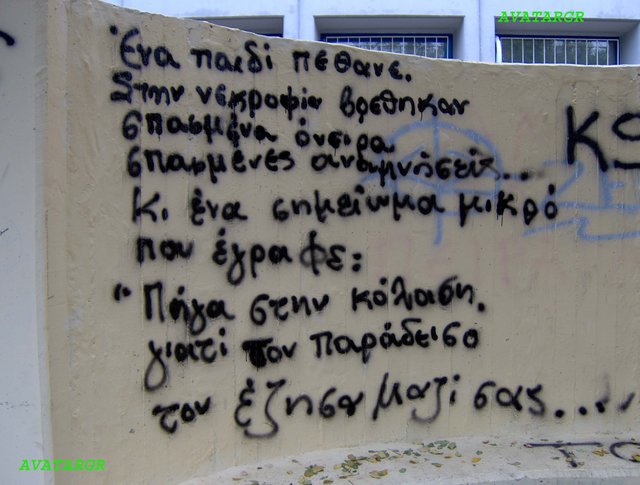 AVATARGR
Ένα παιδί πέθανε.
Στην νεκροψία βρέθηκαν
σπασμένα όνειρα
σπασμένες αναμνήσεις...
κι ένα σημείωμα μικρό
που έγραφε:
"Πήγα στην κόλαση.
γιατί τον παράδεισο
τον έζησα μαζί σας....
KS
AVATARGR